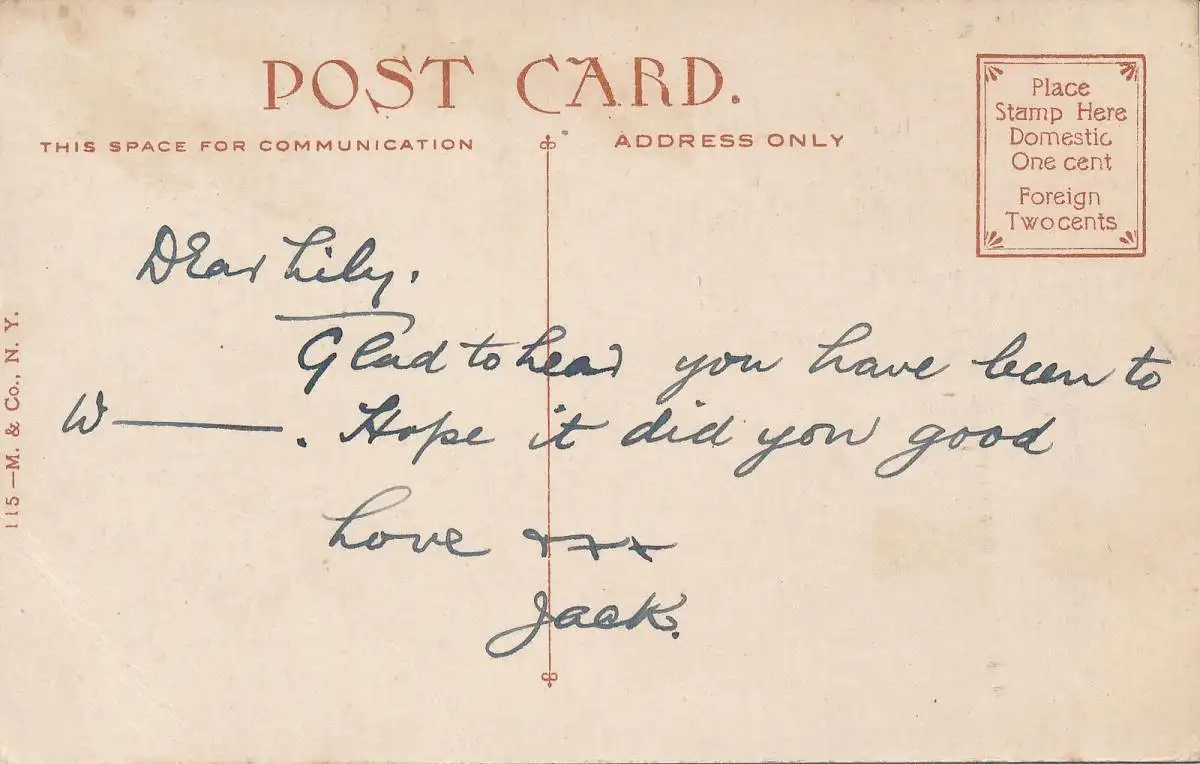 POST CARD.
THIS SPACE FOR COMMUNICATION
ADDRESS ONLY
Place
Stamp Here
Domestic
One cent
Foreign
Two cents
Dear Lily.
Glad to hear you have been to
W———. Hope it did you good
Love xxx
Jack.
115—M. & Co., N. Y.